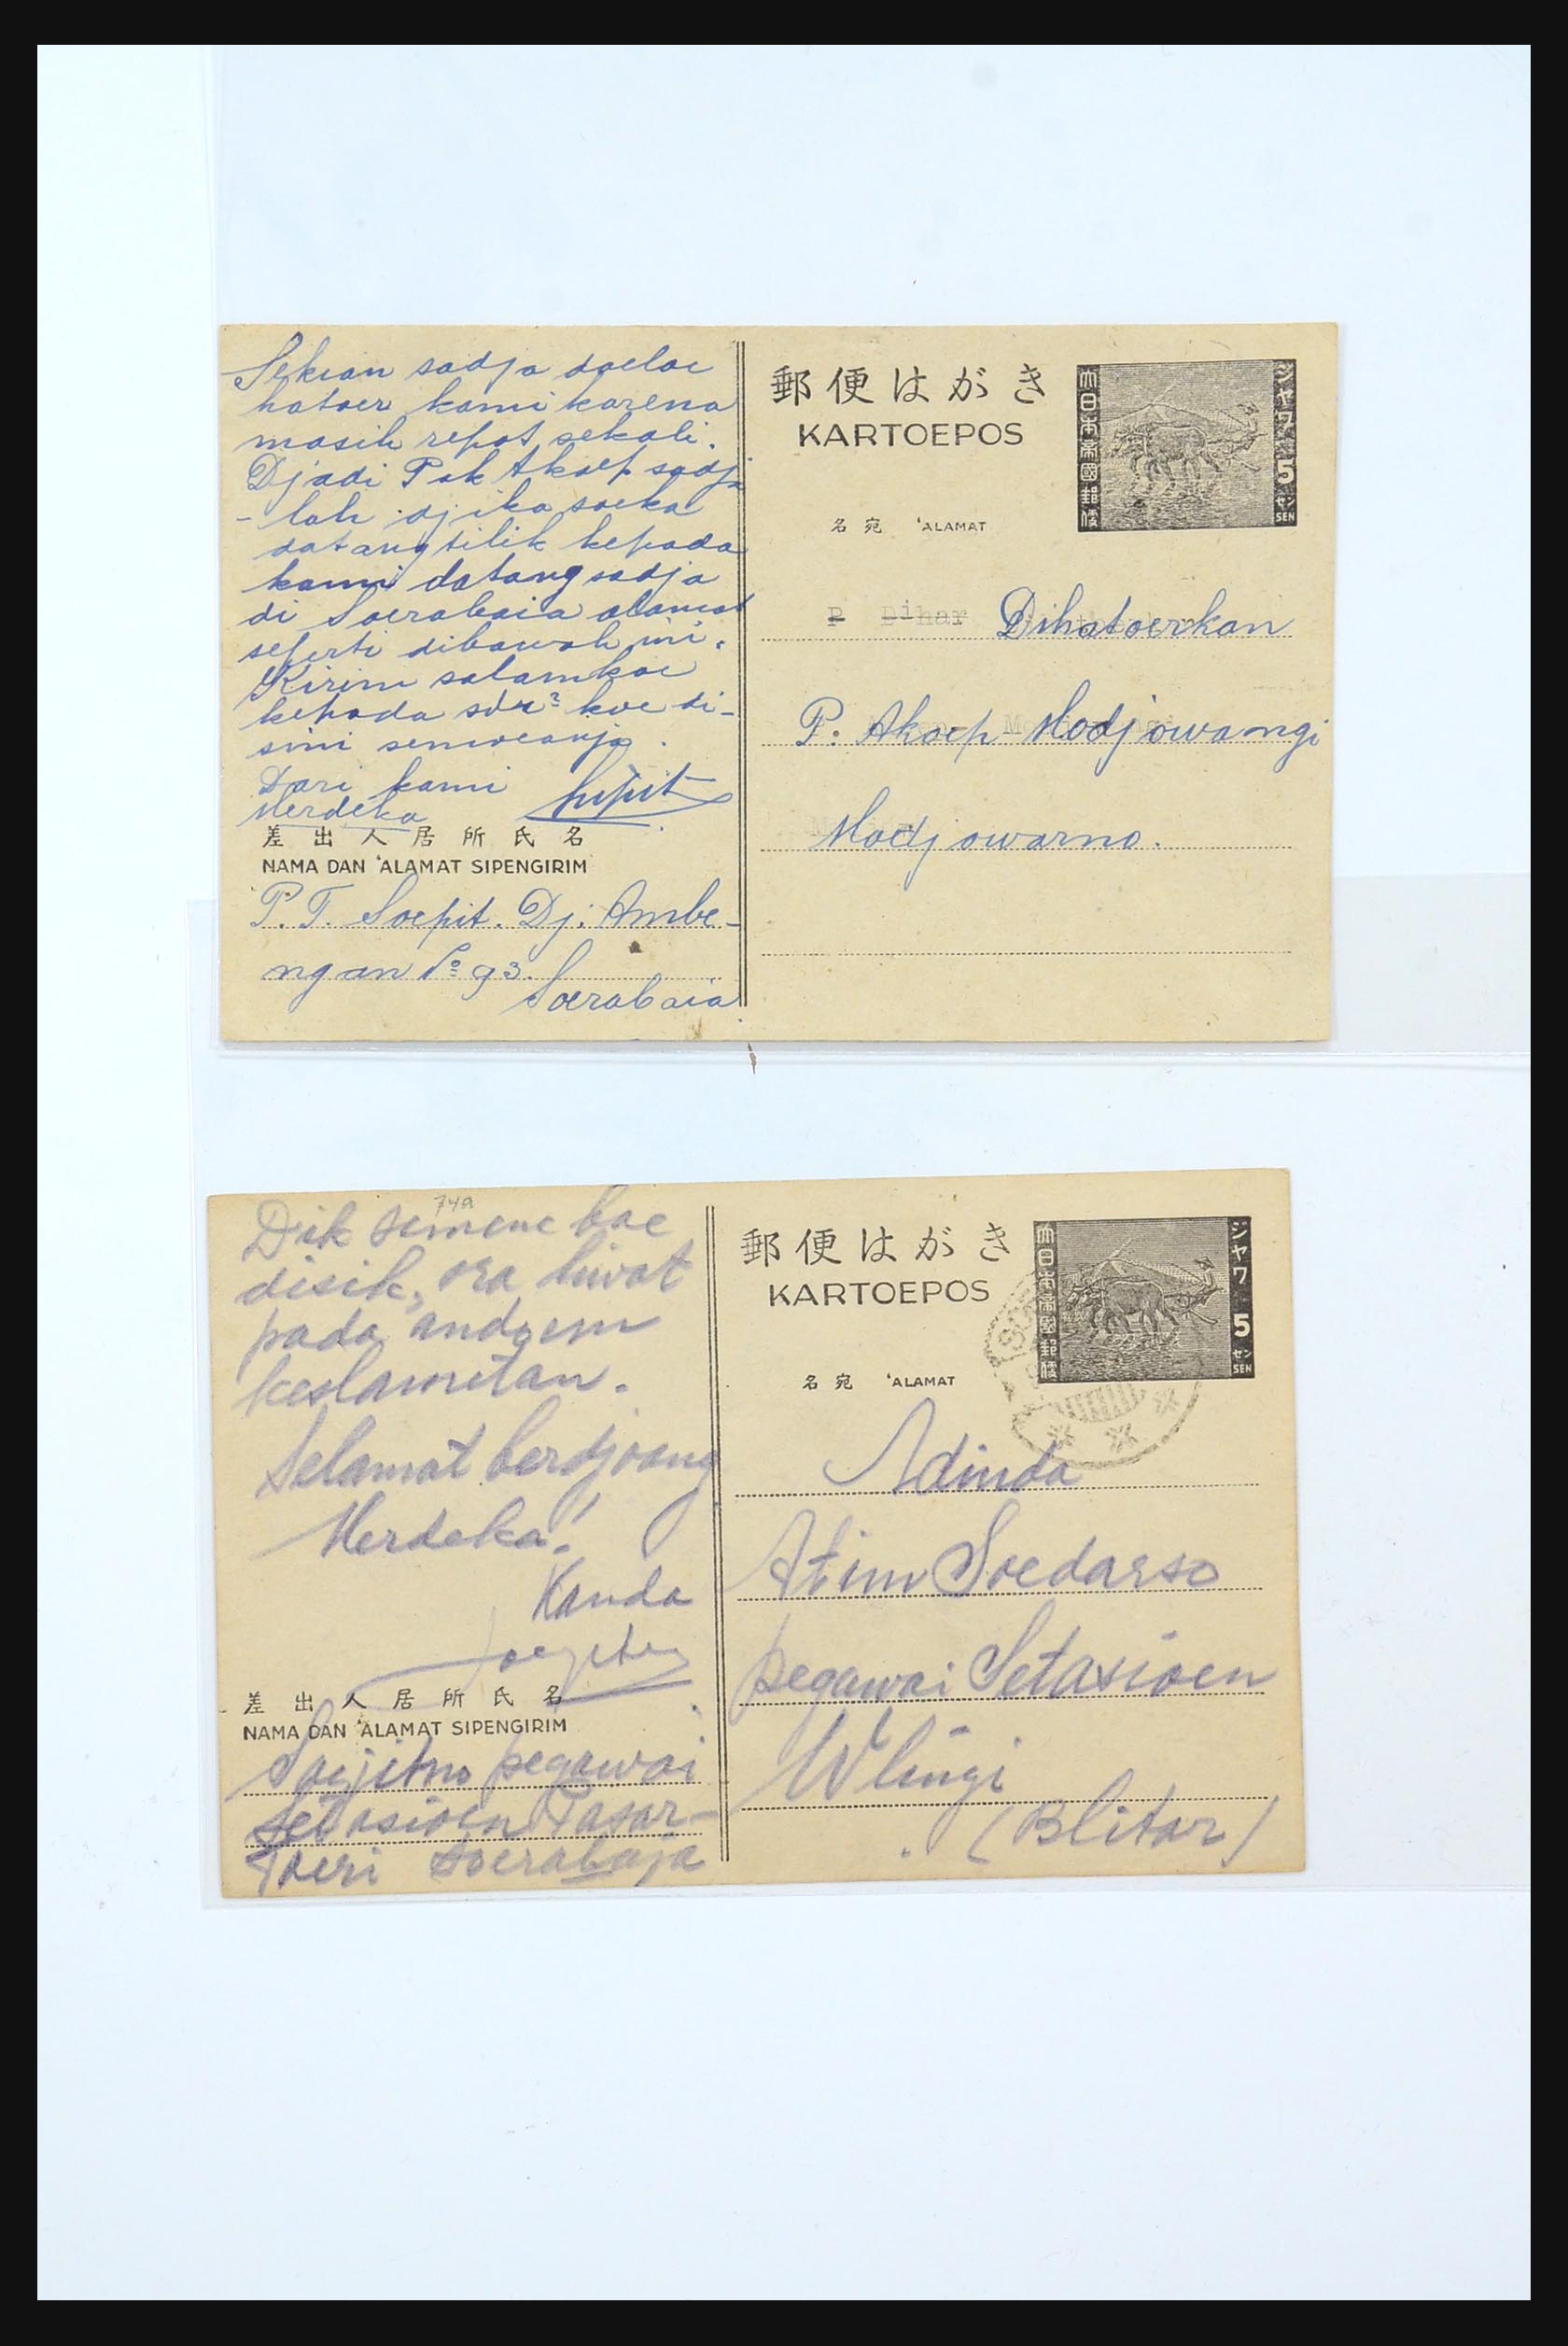 Sekian sadja doeloe
hatoer kami karena
masih repot sekali.
Djadi Pak Akoep sadja
- lah djika soeka
datang tilik kepada
kami datang sadja
di Soerabaia alamat
seperti dibawah ini.
Kirim salamkoe
kepada sdr² koe di-
sini semoeanja.
Dari kami
Merdeka
差出人居所氏名
NAMA DAN 'ALAMAT SIPENGIRIM
P. T. Soepit. Dj. Ambe-
ngan No 93.
Soerabaia
郵便はがき
KARTOEPOS
大日本帝國郵便
ジャワ 5 セン SEN
名宛 'ALAMAT
P Dihar Dihatoerkan
P. Akoep Modjowangi
Modjowarno.
749
Dik semene bae
disik, ora liwat
pada andoem
keslametan.
Selamat berdjoang
Merdeka!
Kanda
差出人居所氏名
NAMA DAN 'ALAMAT SIPENGIRIM
Soejitno pegawai
Setasioen Pasar-
Toeri Soerabaja
郵便はがき
KARTOEPOS
大日本帝國郵便
ジャワ 5 セン SEN
名宛 'ALAMAT
Adinda
Atim Soedarso
pegawai Setasioen
Wlingi
(Blitar)